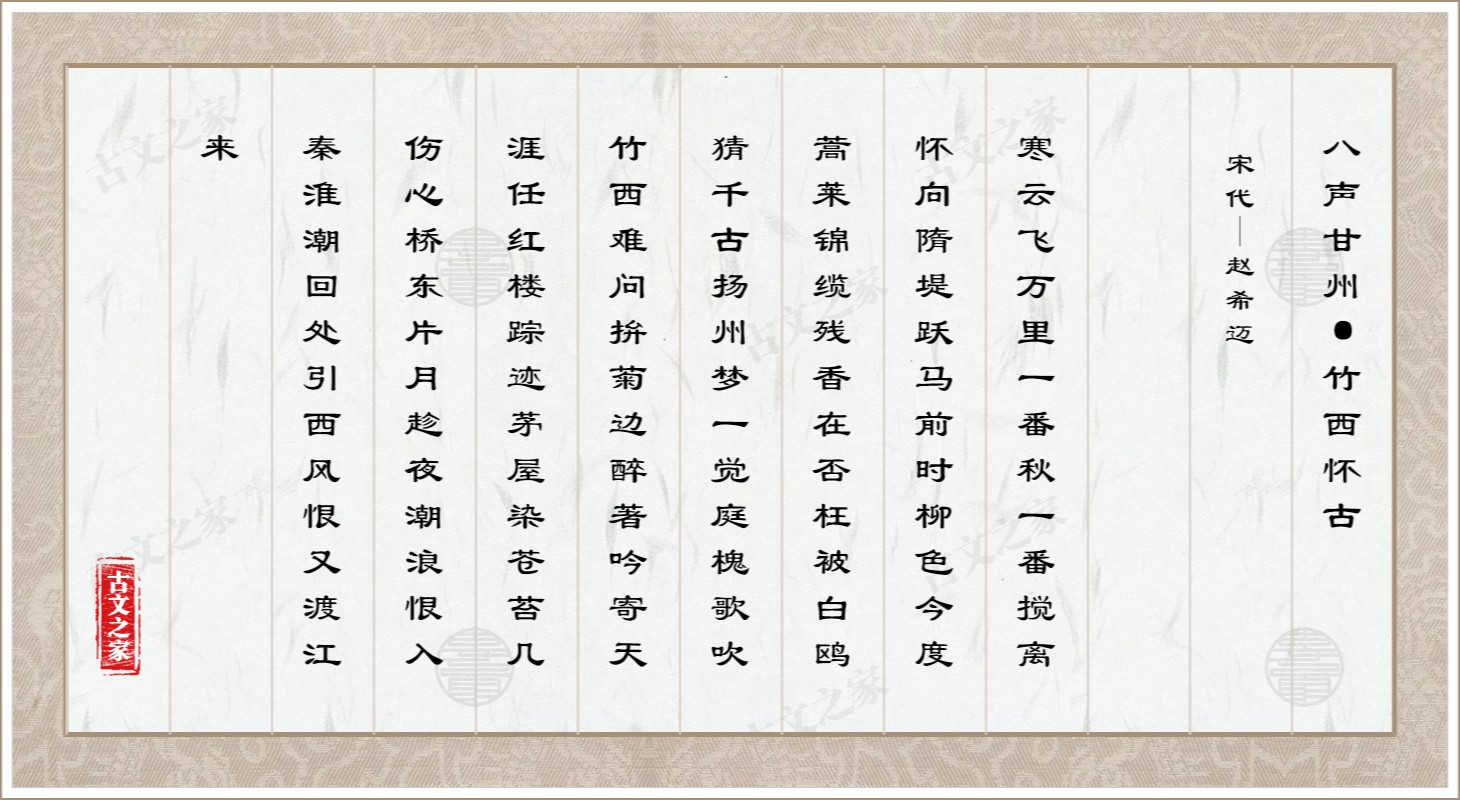 八声甘州●竹西怀古
宋代—赵希迈
寒云飞万里一番秋一番搅离
怀向隋堤跃马前时柳色今度
蒿莱锦缆残香在否枉被白鸥
猜千古扬州梦一觉庭槐歌吹
竹西难问拚菊边醉著吟寄天
涯任红楼踪迹茅屋染苍苔几
伤心桥东片月趁夜潮浪恨入
秦淮潮回处引西风恨又渡江
来
古文之家